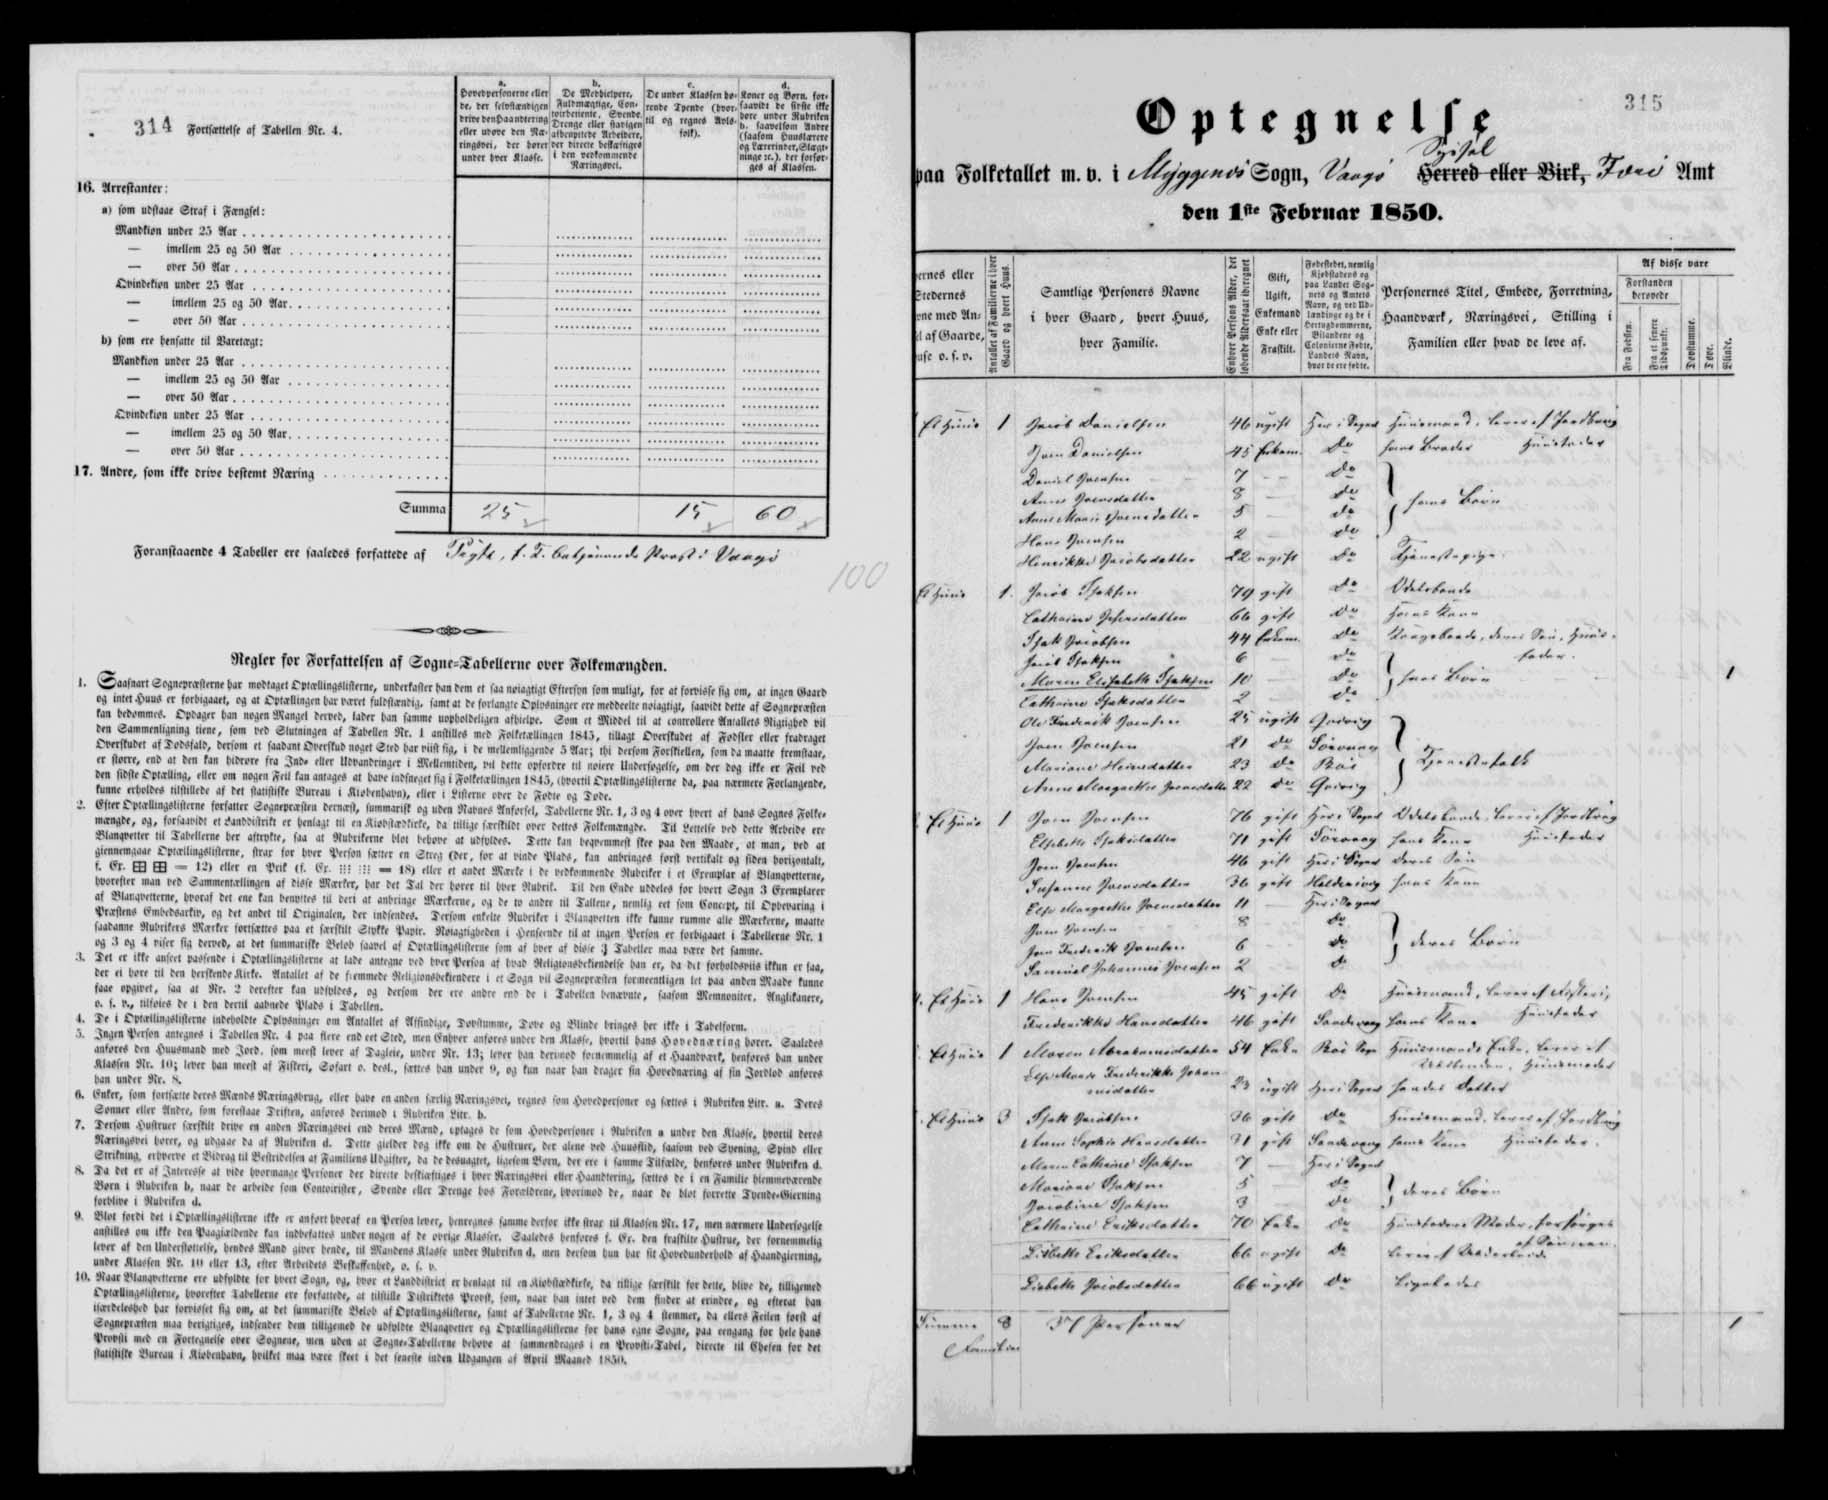 314 Fortsættelse af Tabellen Nr. 4.
a.
Hovedpersonerne eller
de, der selvstændigen
drive den Haandtering
eller udøve den Næ-
ringsvei, der hører
under hver Klasse.
b.
De Medhielpere,
Fuldmægtige, Con-
toirbetiente, Svende
Drenge eller stavigen
afbenyttede Arbeidere,
der directe beskæftiges
i den vedkommende
Næringsvei.
c.
De under Klassen hø-
rende Tyende (hvor-
til og regnes Avls-
folk).
d.
Koner og Børn, for-
saavidt de sidste ikke
høre under Rubriken
b. saavelsom Andre
(saasom Huuslærere
og Lærerinder, Slægt-
ninge ec.), der forsør-
ges af Klassen.
16. Arrestanter:
a) som udstaae Straf i Fængsel:
Mandkiøn under 25 Aar
— imellem 25 og 50 Aar
— over 50 Aar
Qvindekiøn under 25 Aar
— imellem 25 og 50 Aar
— over 50 Aar
b) som ere hensatte til Varetægt:
Mandkiøn under 25 Aar
— imellem 25 og 50 Aar
— over 50 Aar
Qvindekiøn under 25 Aar
— imellem 25 og 50 Aar
— over 50 Aar
17. Andre, som ikke drive bestemt Næring
Summa 25 15 60
Foranstaaende 4 Tabeller ere saaledes forfattede af
100
Regler for Forfattelsen af Sogne-Tabellerne over Folkemængden.
1. Saasnart Sognepræsterne har modtaget Optællingslisterne, underkaster han dem et saa nøiagtigt Eftersyn som muligt, for at forvisse sig om, at ingen Gaard
og intet Huus er forbigaaet, og at Optællingen har været fuldstændig, samt at de forlangte Oplysninger ere meddeelte nøiagtigt, saavidt dette af Sognepræsten
kan bedømmes. Opdager han nogen Mangel derved, lader han samme uopholdeligen afhielpe. Som et Middel til at controllere Antallets Rigtighed vil
den Sammenligning tiene, som ved Slutningen af Tabellen Nr. 1 anstilles med Folketællingen 1845, tillagt Overskudet af Fødsler eller fradraget
Overskudet af Dødsfald, dersom et saadant Overskud noget Sted har viist sig, i de mellemliggende 5 Aar; thi dersom Forskiellen, som da maatte fremstaae,
er større, end at den kan hidrøre fra Ind- eller Udvandringer i Mellemtiden, vil dette opfordre til nøiere Undersøgelse, om der dog ikke er Feil ved
den sidste Optælling, eller om nogen Feil kan antages at have indsneget sig i Folketællingen 1845, (hvortil Optællingslisterne da, paa nærmere Forlangende,
kunne erholdes tilstillede af det statistiske Bureau i Kiøbenhavn), eller i Listerne over de Fødte og Døde.
2. Efter Optællingslisterne forfatter Sognepræsten dernæst, summarisk og uden Navnes Anførsel, Tabellerne Nr. 1, 3 og 4 over hvert af hans Sognes Folke-
mængde, og, forsaavidt et Landdistrikt er henlagt til en Kiøbstædkirke, da tillige særskildt over dettes Folkemængde. Til Lettelse ved dette Arbeide ere
Blanqvetter til Tabellerne her aftrykte, saa at Rubrikerne blot behøve at udfyldes. Dette kan beqvemmest skee paa den Maade, at man, ved at
giennemgaae Optællingslisterne, strax for hver Person sætter en Streg (der, for at vinde Plads, kan anbringes først vertikalt og siden horizontalt,
f. Ex. ⊞ ⊞ = 12) eller en Prik (f. Ex. ⁝⁝⁝ ⁝⁝⁝ = 18) eller et andet Mærke i de vedkommende Rubriker i et Exemplar af Blanqvetterne,
hvorefter man ved Sammentællingen af disse Mærker, har det Tal der hører til hver Rubrik. Til den Ende uddeles for hvert Sogn 3 Exemplarer
af Blanqvetterne, hvoraf det ene kan benyttes til deri at anbringe Mærkerne, og de to andre til Tallene, nemlig eet som Concept, til Opbevaring i
Præstens Embedsarkiv, og det andet til Originalen, der indsendes. Dersom enkelte Rubriker i Blanqvetten ikke kunne rumme alle Mærkerne, maatte
saadanne Rubrikers Mærker fortsættes paa et særskilt Stykke Papir. Nøiagtigheden i Henseende til at ingen Person er forbigaaet i Tabellerne Nr. 1
og 3 og 4 viser sig derved, at det summariske Beløb saavel af Optællingslisterne som af hver af disse 3 Tabeller maa være det samme.
3. Det er ikke anseet passende i Optællingslisterne at lade antegne ved hver Person af hvad Religionsbekiendelse han er, da det forholdsviis ikkun er faa,
der ei høre til den herskende Kirke. Antallet af de fremmede Religionsbekiendere i et Sogn vil Sognepræsten formeentligen let paa anden Maade kunne
faae opgivet, saa at Nr. 2 derefter kan udfyldes, og dersom der ere andre end de i Tabellen benævnte, saasom Memnoniter, Anglikanere,
o. s. v., tilføies de i den dertil aabnede Plads i Tabellen.
4. De i Optællingslisterne indeholdte Oplysninger om Antallet af Afsindige, Døvstumme, Døve og Blinde bringes her ikke i Tabelform.
5. Ingen Person antegnes i Tabellen Nr. 4 paa flere end eet Sted, men Enhver anføres under den Klasse, hvortil hans Hovednæring hører. Saaledes
anføres den Huusmand med Jord, som meest lever af Dagleie, under Nr. 13; lever han derimod fornemmelig af et Haandværk, henføres han under
Klassen Nr. 10; lever han meest af Fiskeri, Søfart o. desl., sættes han under 9, og kun naar han drager sin Hovednæring af sin Jordlod anføres
han under Nr. 8.
6. Enker, som fortsætte deres Mænds Næringsbrug, eller have en anden særlig Næringsvei, regnes som Hovedpersoner og sættes i Rubriken Litr. a. Deres
Sønner eller Andre, som forestaae Driften, anføres derimod i Rubriken Litr. b.
7. Dersom Hustruer særskilt drive en anden Næringsvei end deres Mænd, optages de som Hovedpersoner i Rubriken a under den Klasse, hvortil deres
Næringsvei hører, og udgaae da af Rubriken d. Dette gielder dog ikke om de Hustruer, der alene ved Huusflid, saasom ved Syening, Spind eller
Strikning, erhverve et Bidrag til Bestridelsen af Familiens Udgifter, da de desuagtet, ligesom Børn, der ere i samme Tilfælde, henføres under Rubriken d.
8. Da det er af Interesse at vide hvormange Personer der directe beskiæftiges i hver Næringsvei eller Haandtering, sættes de i en Familie hiemmeværende
Børn i Rubriken b, naar de arbeide som Contoirister, Svende eller Drenge hos Forældrene, hvorimod de, naar de blot forrette Tyende-Gierning
forblive i Rubriken d.
9. Blot fordi det i Optællingslisterne ikke er anført hvoraf en Person lever, henregnes samme derfor ikke strax til Klassen Nr. 17, men nærmere Undersøgelse
anstilles om ikke den Paagiældende kan indbefattes under nogen af de øvrige Klasser. Saaledes henføres f. Ex. den fraskilte Hustrue, der fornemmelig
lever af den Understøttelse, hendes Mand giver hende, til Mandens Klasse under Rubriken d, men dersom hun har sit Hovedunderhold af Haandgierning,
under Klassen Nr. 10 eller 13, efter Arbeidets Beskaffenhed, o. s. v.
10. Naar Blanqvetterne ere udfyldte for hvert Sogn, og, hvor et Landdistrict er henlagt til en Kiøbstædkirke, da tillige særskilt for dette, blive de, tilligemed
Optællingslisterne, hvorefter Tabellerne ere forfattede, at tilstille Distriktets Provst, som, naar han intet ved dem finder at erindre, og efterat han
isærdeleshed har forvisset sig om, at det summariske Beløb af Optællingslisterne, samt af Tabellerne Nr. 1, 3 og 4 stemmer, da ellers Feilen først af
Sognepræsten maa berigtiges, indsender dem tilligemed de udfyldte Blanqvetter og Optællingslisterne for hans egne Sogne, paa eengang for hele hans
Provsti med en Fortegnelse over Sognene, men uden at Sogne-Tabellerne behøve at sammendrages i en Provsti-Tabel, directe til Chefen for det
statistiske Bureau i Kiøbenhavn, hvilket maa være skeet i det seneste inden Udgangen af April Maaned 1850.
315
Optegnelse
Syssel
paa Folketallet m. v. i Myggenæs Sogn, Vaagø Herred eller Birk, Færø Amt
den 1ste Februar 1850.
ernes eller
Stedernes
ne med An-
l af Gaarde,
use o. s. v.
Antallet af Familierne i hver
Gaard og hvert Huus.
Samtlige Personers Navne
i hver Gaard, hvert Huus,
hver Familie.
Enhver Persons Alder, det
løbende Aldersaar iberegnet
Gift,
Ugift,
Enkemand
Enke eller
Fraskilt.
Fødestedet, nemlig
Kjøbstadens og
paa Landet Sog-
nets og Amtets
Navn, og ved Ud-
lændinge og de i
Hertugdømmerne,
Bilandene og
Colonierne Fødte,
Landets Navn,
hvor de ere fødte.
Personernes Titel, Embede, Forretning,
Haandværk, Næringsvei, Stilling i
Familien eller hvad de leve af.
Af disse vare
Forstanden
berøvede
Fra Fødslen.
Fra et senere
Tidspunkt.
Døvstumme.
Døve.
Blinde.
Et Huus 1 Jacob Danielsen 46 ugift Her i Sognet Huusmand, lever af Jordbrug
Joen Danielsen 45 Enkem. Do hans Broder Huusfader
Daniel Joensen 7 — Do
Anne Joensdatter 8 — Do hans Børn
Anne Marie Joensdatter 5 Do
Hans Joensen 2 — Do
Henrikke Jacobsdatter 22 ugift Do Tjenestepige
Et Huus 1. Jacob Isaksen 79 gift Do Odelsbonde
Cathrine 66 gift Do Hans Kone
Isak Jacobsen 44 Enkem. Do Kongsbonde, deres Søn, Huus-
fader.
Jacob Isaksen 6 — Do
Maren Elisabeth Isaksen 10 — Do hans Børn 1
Cathrine Isaksdatter 2 — Do
Ole Frederik Joensen 25 ugift Qvivig
Joen Joensen 21 do Sørvaag
Mariane Heinesdatter 23 do Bøe Tjenestefolk
Anne Margrethe Joensdatter 22 do Qvivig
Et Huus 1 Joen Joensen 76 gift Her i Sognet Odelsbonde, lever af Jordbrug
Elsebeth Isaksdatter 71 gift Sørvaag hans Kone Huusfader
Joen Joensen 46 gift Her i Sognet deres Søn
Susanne Joensdatter 36 gift Haldersvig hans Kone
Else Margrethe Joensdatter 11 — Her i Sognet
Joen Joensen 8 — Do
Joen Frederik Joensen 6 — Do deres Børn
Samuel Johannes Joensen 2 — Do
Et Huus 1 Hans Joensen 45 gift Do Huusmand, lever af Fiskeri,
Huusfader
Frederikke Hansdatter 46 gift Sandevaag hans Kone
Et Huus 1 Maren Abrahamsdatter 54 Enke Bøe Sogn Huusmands Enke, lever af
Huusmoder
Else Marie Frederikke Johan-
nesdatter 23 ugift Her i Sognet hendes Datter
Et Huus 3 Isak Jacobsen 36 gift Do Huusmand, lever af Jordbrug
Anne Sophie Hansdatter 31 gift Sandevaag hans Kone Huusfader.
Maren Cathrine Isaksen 7 — Her i Sognet
Mariane Isaksen 5 — Do deres Børn
Jacobine Isaksen 3 — Do
Cathrine Eriksdatter 70 Enke Do Huusfaderens Moder, forsørges
af Sønnen.
Lisbeth Eriksdatter 66 ugift Do lever af
Lisbeth Jacobsdatter 66 ugift Do Ligeledes
Summa 8 37 Personer 1
Familier